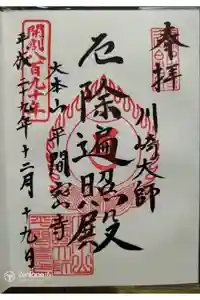 奉拝
川崎大師
厄除遍照殿
大本山平間寺
開創八百九十年
平成二十九年十二月十九日